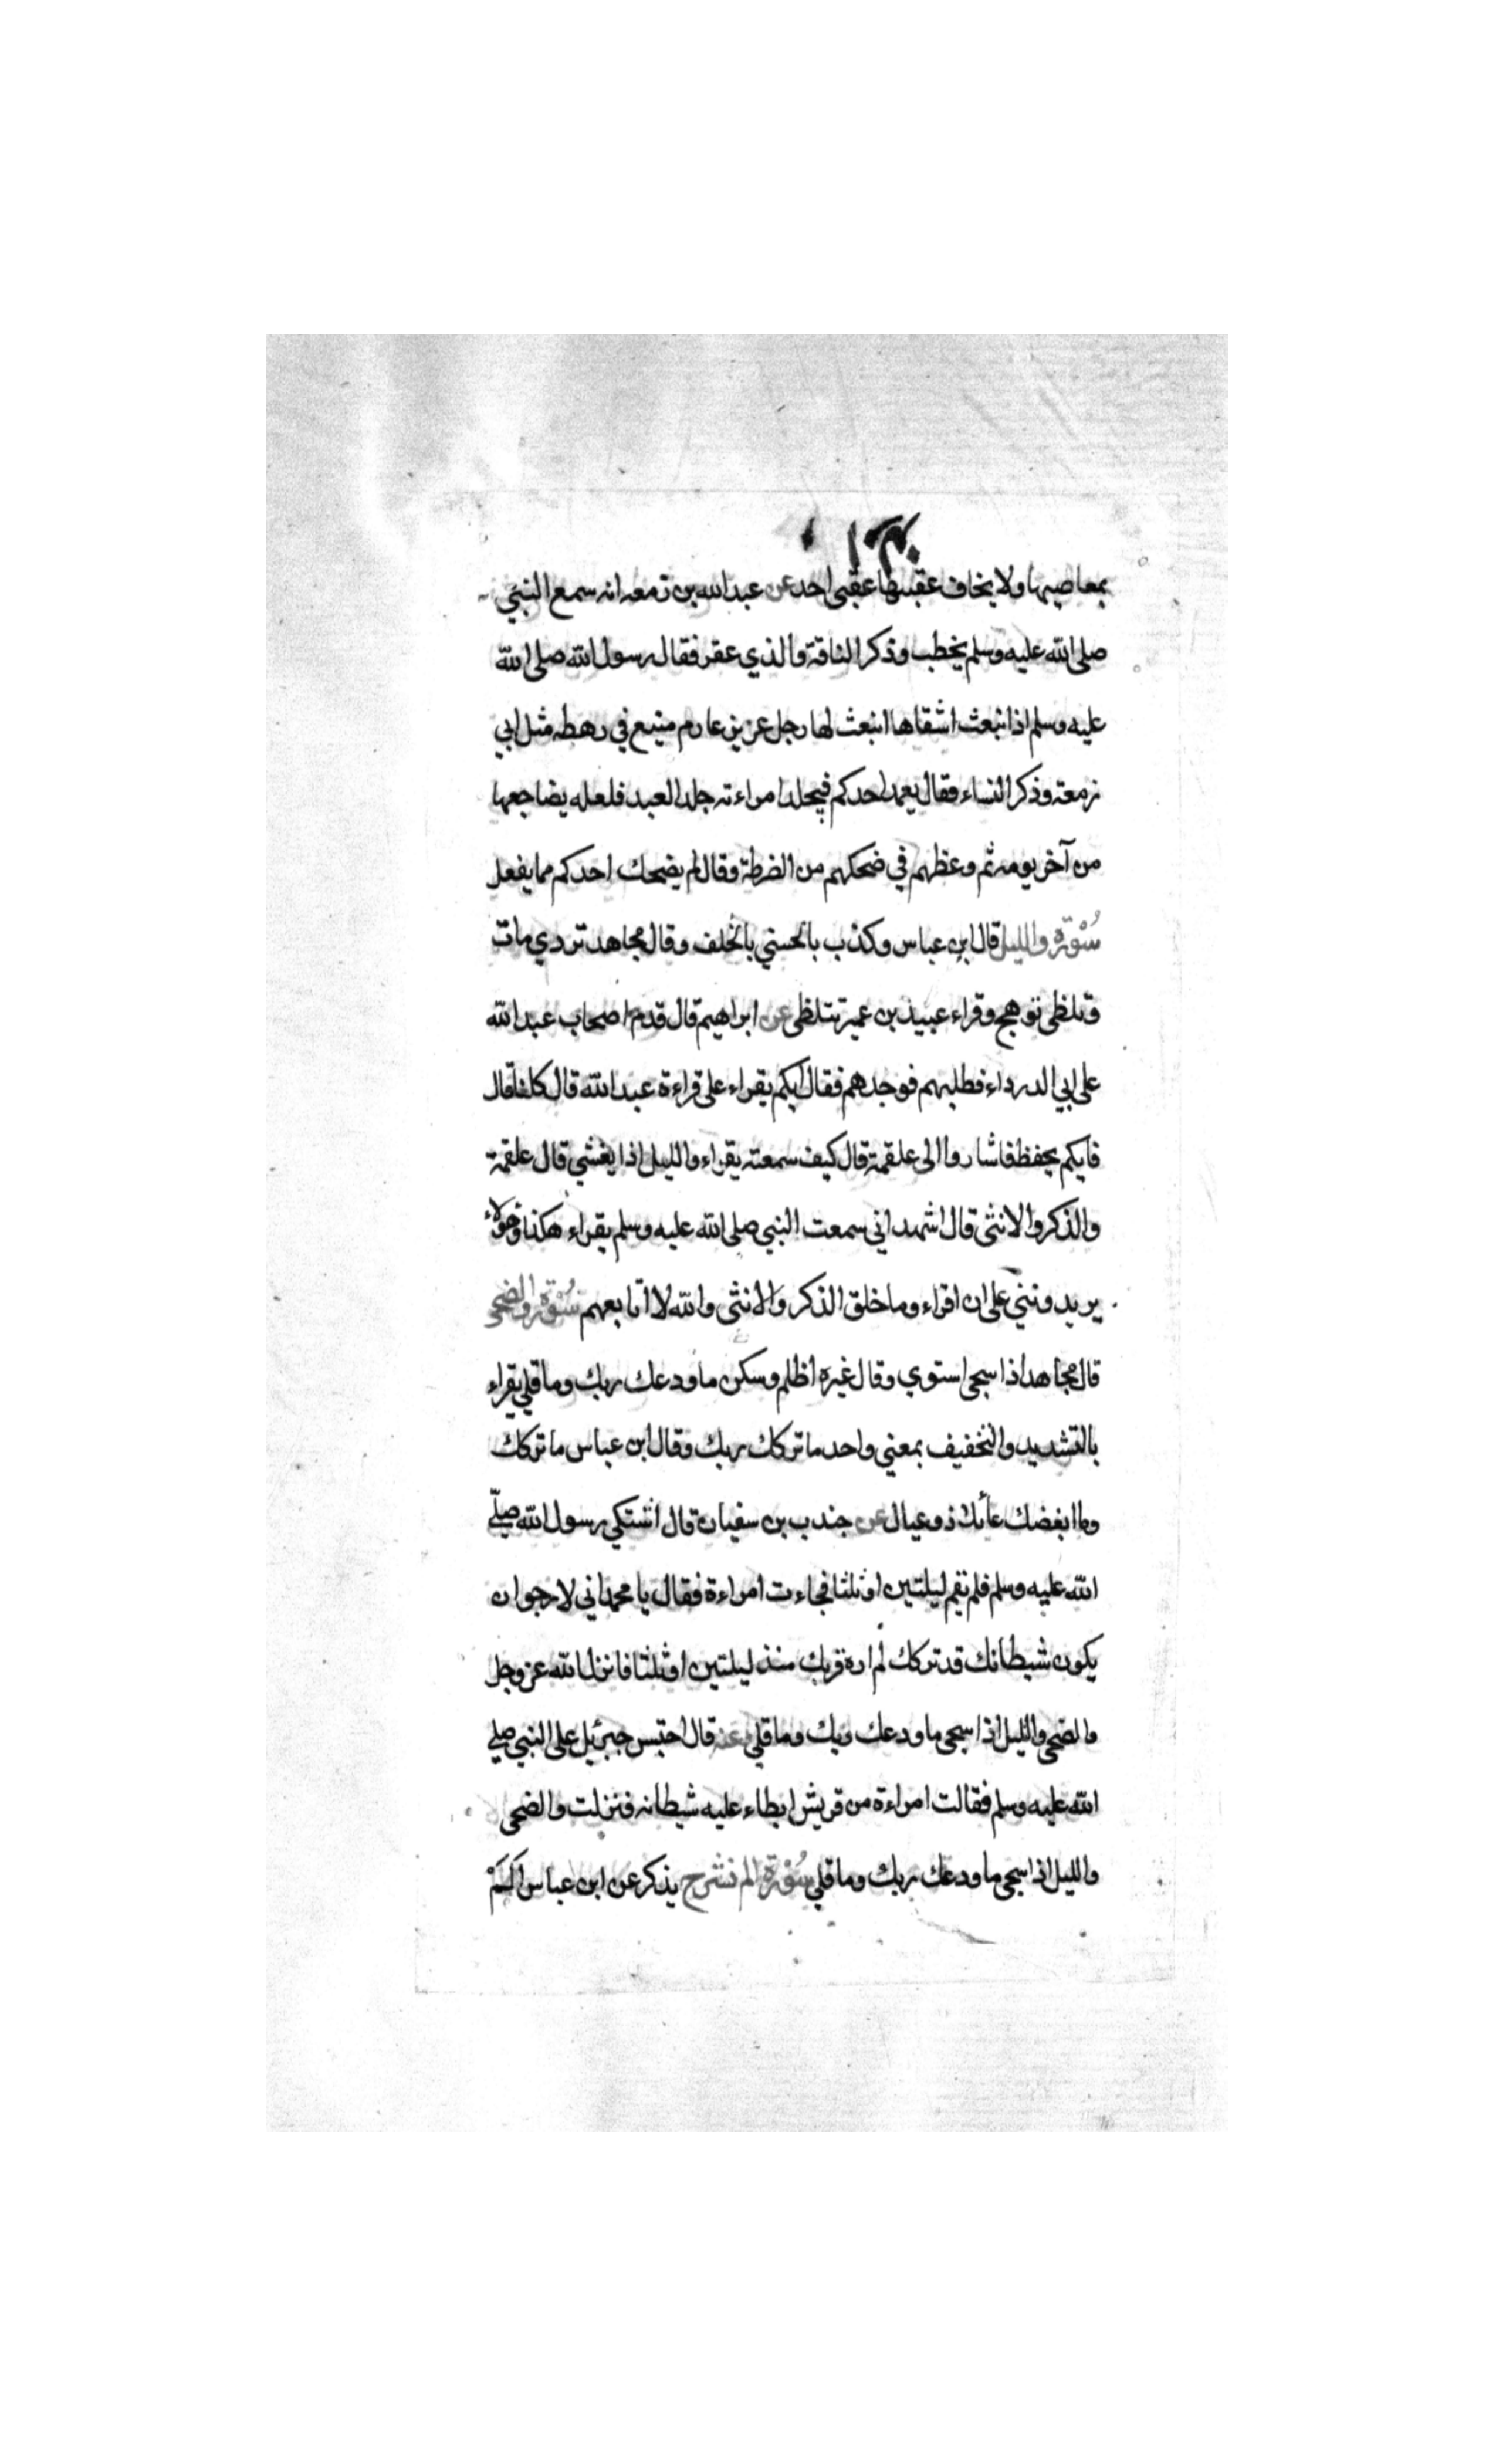 بمعاصيها ولا يخاف عقبيها عقبى احد عن عبدالله بن زمعه انه سمع النبي
صلى الله عليه وسلم يخطب وذكر الناقة والذي عقر فقال رسول الله صلى الله
عليه وسلم اذا نبعث اشقاها انبعث لها رجل عزيز عارم منيع في رهطه مثل ابي
زمعة وذكر النساء فقال يعمد احدكم فيجلد امراءته جلد العبد فلعله يضاجعها
من آخر يومه ثم وعظهم في ضحكهم من الضرطة وقال لم يضحك احدكم مما يفعل
سُوْرَة والليل قال ابن عباس وكذب بالحسني بالخلف وقال مجاهد تردي مات
وتلظى توهج وقراء عبيد بن عمير تتلظى عن ابراهيم قال قدم اصحاب عبدالله
على ابي الدرداء فطلبهم فوجدهم فقال ايكم يقراء على قراءة عبدالله قال كلنا قال
فايكم يحفظ فاشاروا الى علقمة قال كيف سمعته يقراء والليل اذا يغشي قال علقمة
والذكر والانثى قال اشهد اني سمعت النبي صلى الله عليه وسلم يقراء هكذا وهؤلاء
يريدونني على ان اقراء وما خلق الذكر والانثى والله لا اتابعهم سُوْرَة والضحى
قال مجاهد اذا سجى استوي وقال غيره اظلم وسكن ما ودعك ربك وما قلي يقراء
بالتشديد والتخفيف بمعني واحد ما تركك ربك وقال ابن عباس ما تركك
وما ابغضك عائلا ذو عيال عن جندب بن سفيان قال اشتكي رسول الله صلى
الله عليه وسلم فلم يقم ليلتين او ثلثا فجاءت امراءة فقال يا محمد اني لارجو ان
يكون شيطانك قد تركك لم اره قربك منذ ليلتين او ثلثا فانزل الله عز وجل
والضحى والليل اذا سجى ما ودعك ربك وما قلي وعنه قال احتبس جبرئيل على النبي صلى
الله عليه وسلم فقالت امراءة من قريش ابطاء عليه شيطانه فنزلت والضحى
والليل اذا سجى ما ودعك ربك وما قلي سُوْرَة الم نشرح يذكر عن ابن عباس اَلَمْ